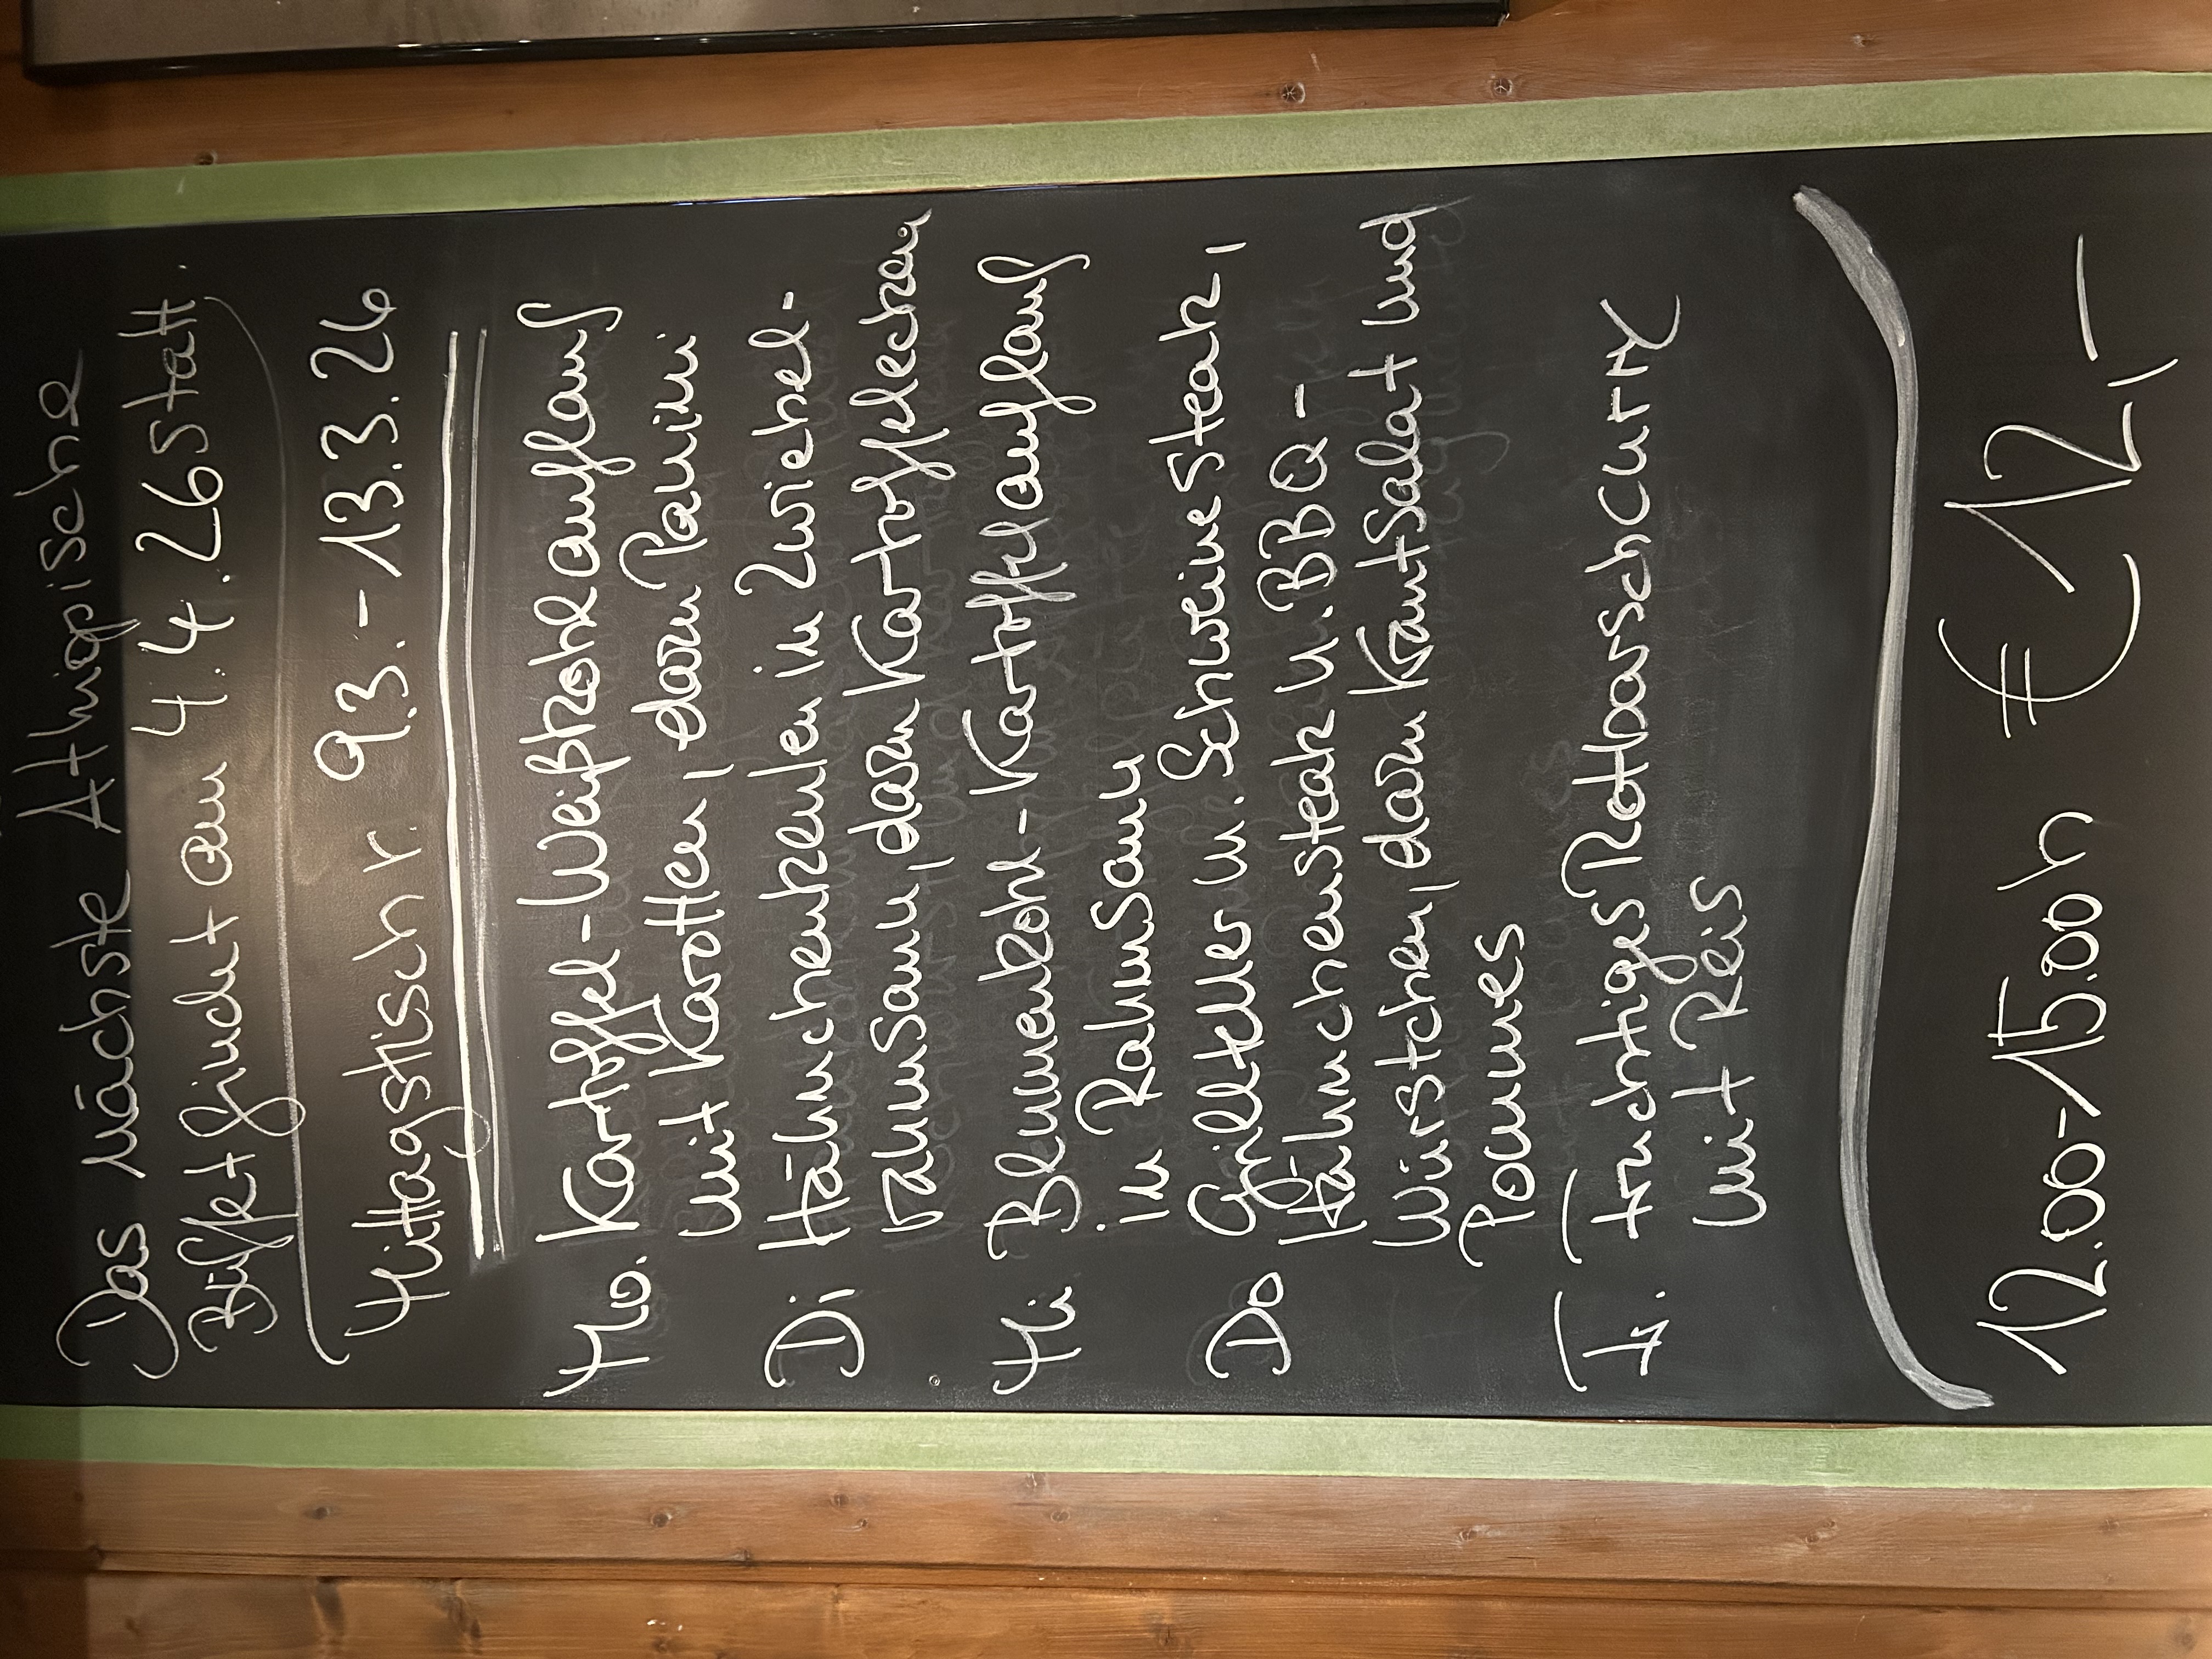 Das nächste Äthiopische
Büffet findet am 4.4.26 statt.
Mittagstisch v. 9.3.-13.3.26
Mo. Kartoffel-Weißkohlauflauf
mit Karotten, dazu Panini
Di Hähnchenkeulen in Zwiebel-
rahmsauce, dazu Kartoffelecken
Mi. Blumenkohl-Kartoffelauflauf
in Rahmsauce
Do Grillteller m. Schweinesteak,
Hähnchensteak u. BBQ-
Würstchen, dazu Krautsalat und
Pommes
Fr. Fruchtiges Rotbarschcurry
mit Reis
12.00-15.00h € 12,-